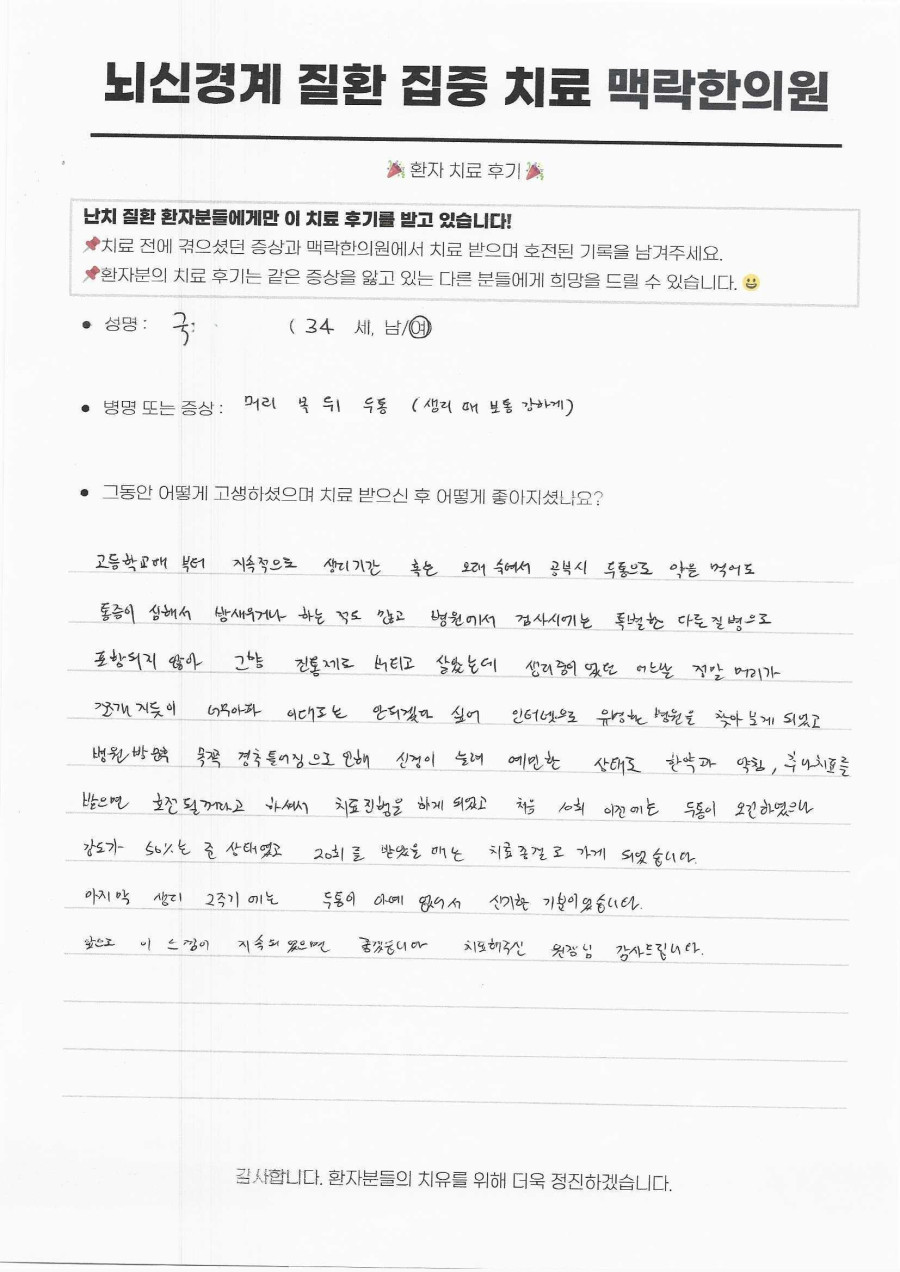 뇌신경계 질환 집중 치료 맥락한의원
🎉 환자 치료 후기 🎉
난치 질환 환자분들에게만 이 치료 후기를 받고 있습니다!
📌치료 전에 겪으셨던 증상과 맥락한의원에서 치료 받으며 호전된 기록을 남겨주세요.
📌환자분의 치료 후기는 같은 증상을 앓고 있는 다른 분들에게 희망을 드릴 수 있습니다. 😀
● 성명 : 국 ( 34 세, 남/여)
● 병명 또는 증상 : 머리 목 뒤 두통 (생리 때 보통 강하게)
● 그동안 어떻게 고생하셨으며 치료 받으신 후 어떻게 좋아지셨나요?
고등학교때 부터 지속적으로 생리기간 혹은 오래 숙여서 공부시 두통으로 약을 먹어도
통증이 심해서 밤새우거나 하는 적도 많고 병원에서 검사시에는 특별한 다른질병으로
포함되지 않아 그냥 진통제로 버티고 살았는데 생리중이었던 어느날 정말 머리가
쪼개지듯이 너무아파 이대로는 안되겠다 싶어 인터넷으로 유명한 병원을 찾아보게 되었고
병원방문 목쪽 경추틀어짐으로 인해 신경이 눌려 예민한 상태로 한약과 약침, 추나치료를
받으면 호전될꺼라고 하셔서 치료진행을 하게 되었고 처음 10회 이전에는 두통이 오긴하였으나
강도가 50%는 준 상태였고 20회를 받았을 때는 치료종결로 가게 되었습니다.
마지막 생리 2주기에는 두통이 아예 없어서 신기한 기분이었습니다.
앞으로 이 느낌이 지속되었으면 좋겠습니다 치료해주신 원장님 감사드립니다.
감사합니다. 환자분들의 치유를 위해 더욱 정진하겠습니다.